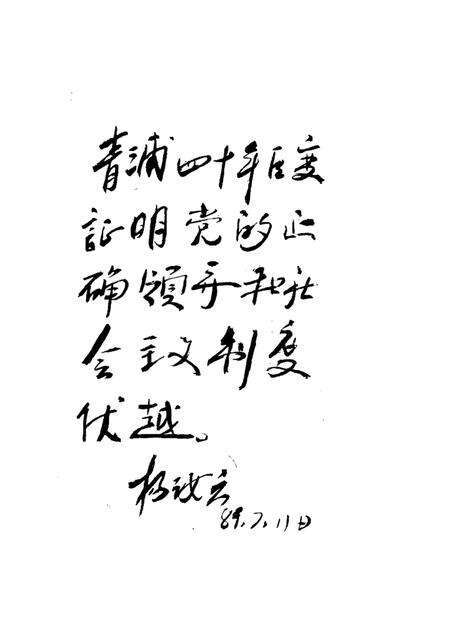 青浦四十年巨度
証明党的正
确領导和社
会主义制度
优越。
杨
89.7.11日